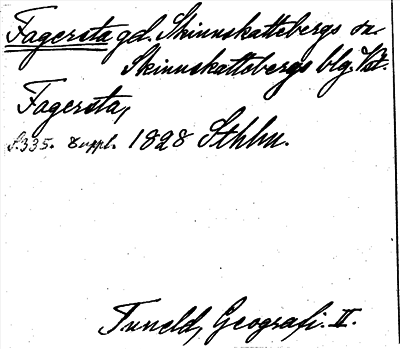 Fagersta gd. Skinnskattebergs sn
Skinnskattebergs blg. Vstm.
Fagersta,
S.335. Suppl. 1828 Sthlm.
Tuneld, Geografi. II.